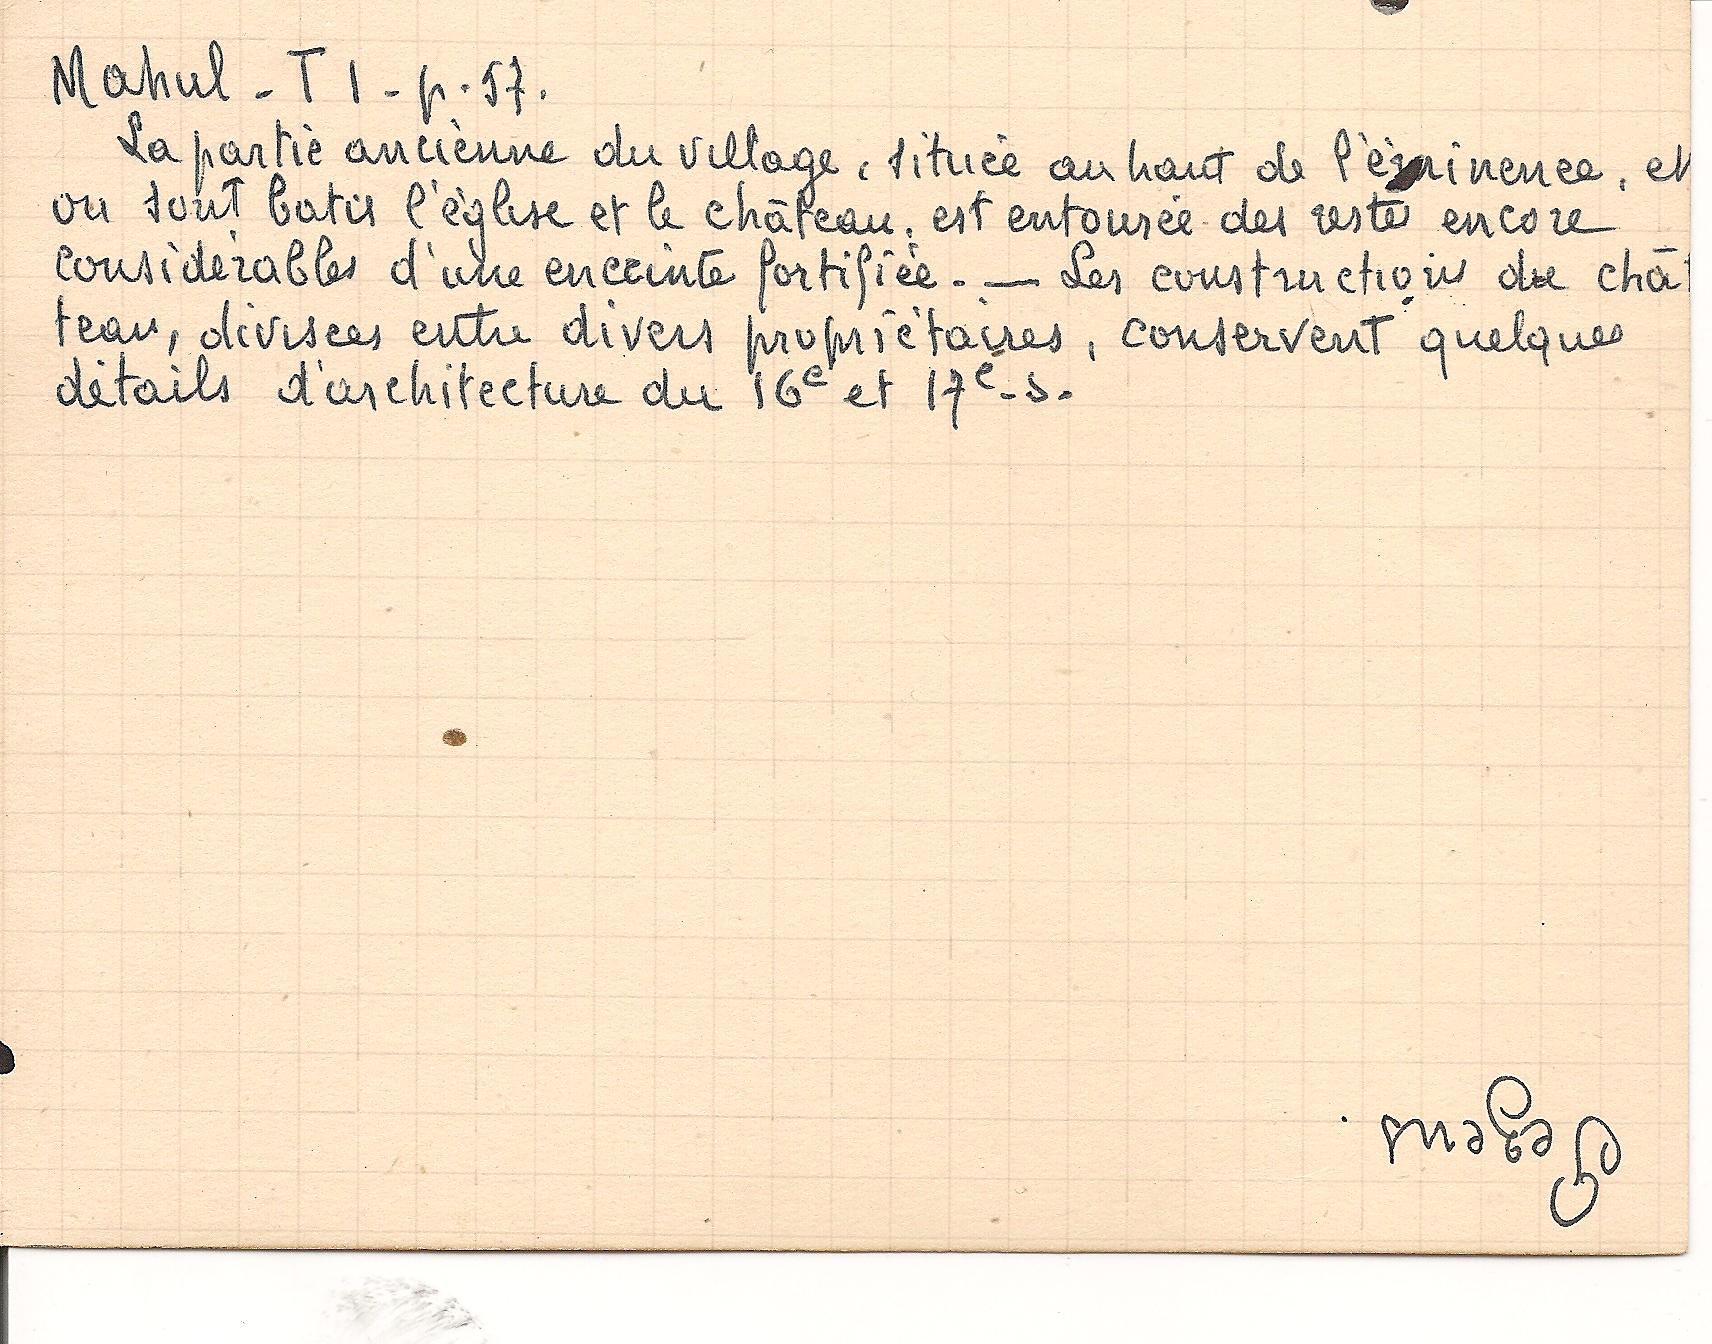 Mahul - T 1 - p. 57.
La partie ancienne du village, située au haut de l'éminence, et
ou sont batis l'église et le château, est entourée des restes encore
considérables d'une enceinte fortifiée. — Les constructions du châ
teau, divisées entre divers propriétaires, conservent quelques
détails d'architecture du 16e et 17e. s.
Pezens